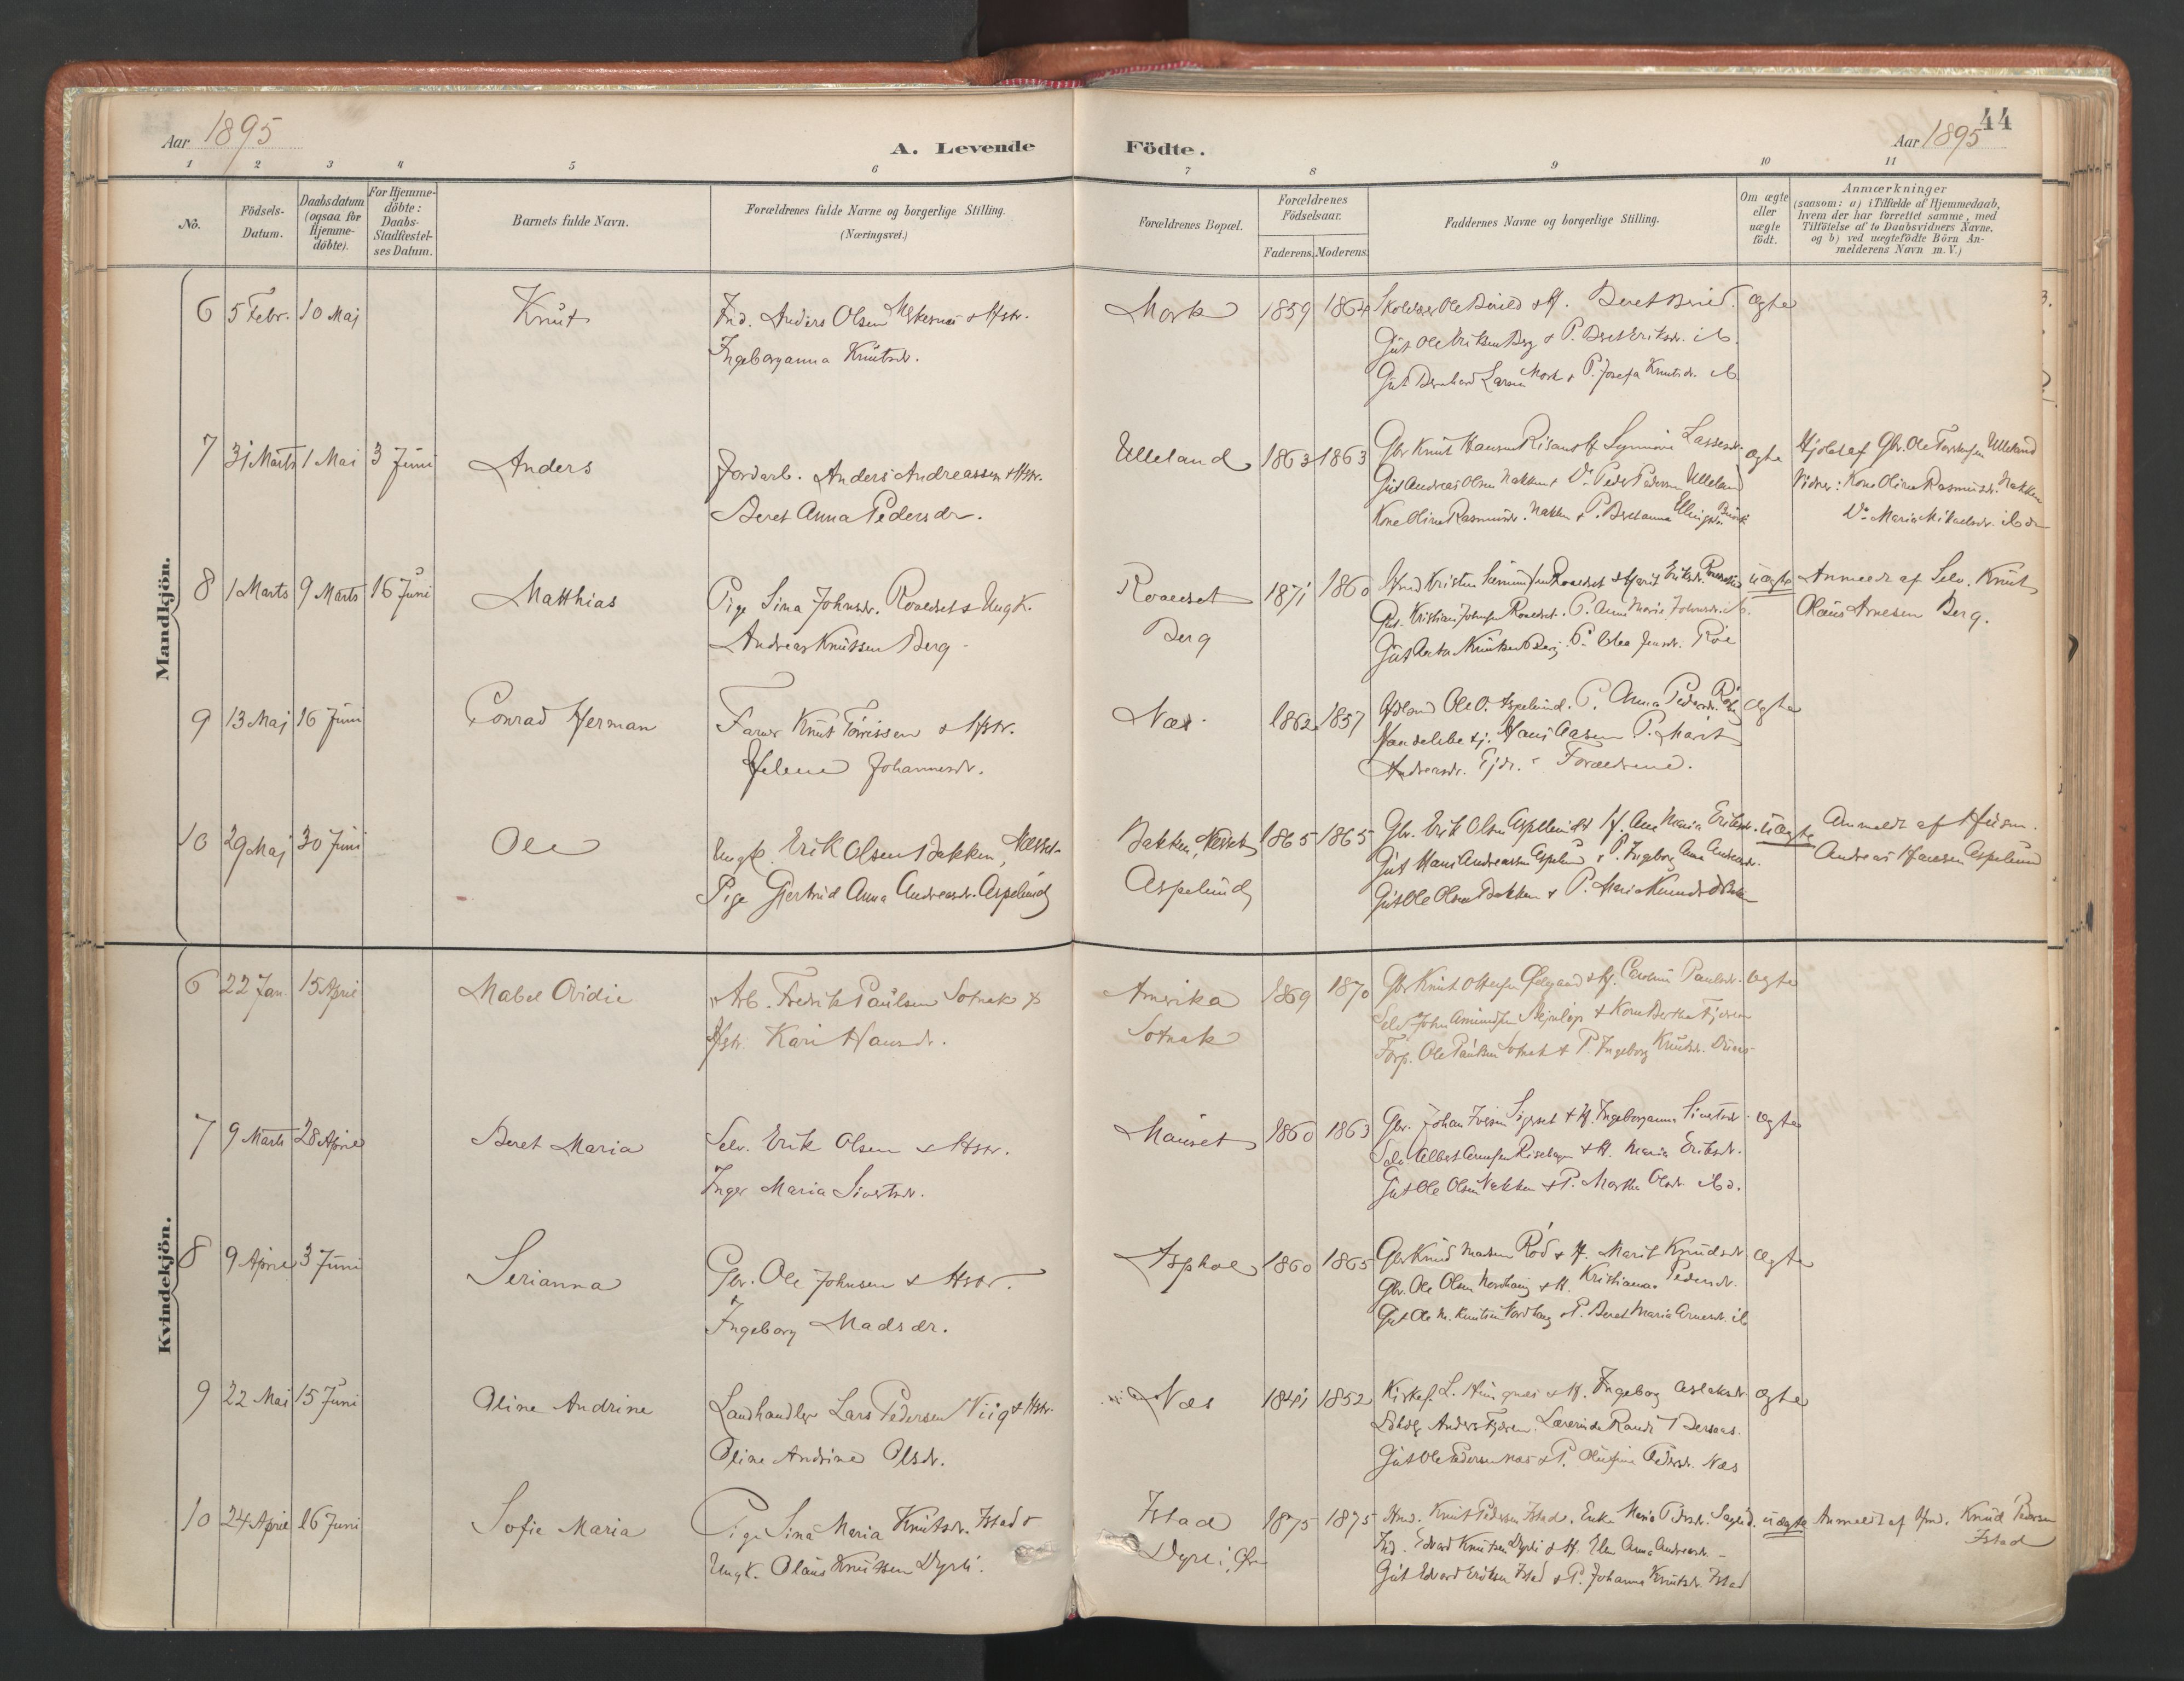 44
Aar 1895
A. Levende
Födte.
Aar 1895
1 2 3 4 5 6 7 8 9 10 11
No.
Födsels-
Datum.
Daabsdatum
(ogsaa for
Hjemme-
döbte).
For Hjemme-
döbte:
Daabs-
Stadfæstel-
ses Datum.
Barnets fulde Navn.
Forældrenes fulde Navne og borgerlige Stilling.
(Næringsvei.)
Forældrenes Bopæl.
Forældrenes
Födselsaar.
Faderens. Moderens.
Faddernes Navne og borgerlige Stilling.
Om ægte
eller
uægte
födt.
Anmærkninger
(saasom: a) i Tilfælde af Hjemmedaab,
hvem der har forrettet samme, med
Tilföielse af to Daabsvidners Navne,
og b) ved uægtefödte Börn An-
melderens Navn m. V.)
Mandkjön.
6 5 Febr. 10 Maj Knut
Ind. Anders Olsen & Hstr.
Ingeborganna Knutsdr.
Mork 1859 1864
Ole & H. Beret ægte
Gut Ole Eriksen Berg & P. Beret Eriksdr. ib.
Gut Bernhard Larsen Mork & P. Josefa Knutsdr. ib.
7 31 Marts 1 Mai 3 Juni Anders
Jordarb. Anders Andreassen & Hstr.
Beret Anna Pedersdr.
Ulleland 1863 1863
Gbr Knut Hansen & H. Synnøve Lassesdr. ægte
Gut Andreas Olsen Nakken & Do Peder Pedersen Ulleland
Kone Oline Rasmusdr. Nakken & P. Beretanna Ellingsdr.
Hjdøbt af Gbr. Ole Ulleland
Vidner: Kone Oline Rasmusdr. Nakken
Do Maria Mikaelsdr. ibdm
8 1 Marts 9 Marts 16 Juni Matthias
Pige Sina Johnsdr. Roaldset & Ungk.
Andreas Knutsen Berg
Roaldset
Berg
1871 1860
Kristen Roaldset & Marit Eriksdr. uægte
Gut Kristian Johnsen Roaldset. P. Anne Marie Johnsdr. ib.
Gut Knutsen Berg. P. Jensdr. Röe
Anmeldt af Selv. Knut
Olaus Arnesen Berg.
9 13 Maj 16 Juni Conrad Herman
Farmer Knut Tørrissen & Hstr.
Helene Johannesdr.
Næs 1862 1857
Ole O. Aspelund. P. Anna Pedersdr. ægte
Handelsbetj. Hans Aasen P. Marit
Andreasdr. Forældrene.
10 29 Maj 30 Juni Ole
Ungk. Erik Olsen Bakken, Nesset
Pige Gjertrud Anna Andreasdr. Aspelund
Bakken, Nesset
Aspelund
1865 1865
Gbr. Erik Olsen Aspelund & H. Ane Maria Eriksdr. uægte
Gut Hans Andreassen Aspelund & P. Ingeborg Anna Andreasdr.
Gut Ole Olsen Bakken & P. Marie
Anmeldt af Husm.
Andreas Hansen Aspelund
Kvindekjön.
6 22 Jan. 15 April Mabel Ovidie
Arb. Fredrik Paulsen Sotnak &
Hstr. Kari Hansdr.
Amerika
Sotnak
1869 1870
Gbr Knut & H. Paulsdr. ægte
Selv John Amundsen & Kone Bertha
Forp. Ole Paulsen Sotnak & P. Ingeborg Knutsdr.
7 9 Marts 28 April Beret Maria
Selv. Erik Olsen & Hstr.
Inger Maria Sivertsdr.
Mauset 1860 1863
Gbr. Johan Iversen & H. Ingeborganna Sivertsdr. ægte
Selv Albert Arnesen & H. Maria Eriksdr.
Gut Ole Olsen Nakken & P. Martha Olsdr. ibd.
8 9 April 3 Juni Serianna
Gbr. Ole Johnsen & Hstr.
Ingeborg Madsdr.
Asphol 1860 1865
Gbr Knud Madsen Röd & H. Marit Knudsdr. ægte
Gbr. Ole Olsen Nordhaug & H. Kristianna Pedersdr.
Gut Ole M. Knutsen Nordhaug & P. Beret Maria Arnesdr. ib
9 22 Mai 15 Juni Oline Andrine
Landhandler Lars Pedersen Viig & Hstr.
Oline Andrine Olsdr.
Næs 1841 1852
Kirkes. L. & H. Ingeborg Aslaksdr. ægte
Anders. Lærerinde Randi
Gut Ole Pedersen Næs & P. Pedersdr. Næs
10 24 April 16 Juni Sofie Maria
Pige Sina Maria Knutsdr. Istad &
Ungk. Olaus Knutsen Dyrli.
Istad
Dyrli, Ør
1875 1875
Knut Pedersen Istad. Enke Maria uægte
Ind. Edvard Knutsen Dyrli & H. Elen Anna Andreasdr.
Gut Edvard Eriksen Istad & P. Johanna Knutsdr. Istad
Anmeldt af Knud Pedersen
Istad